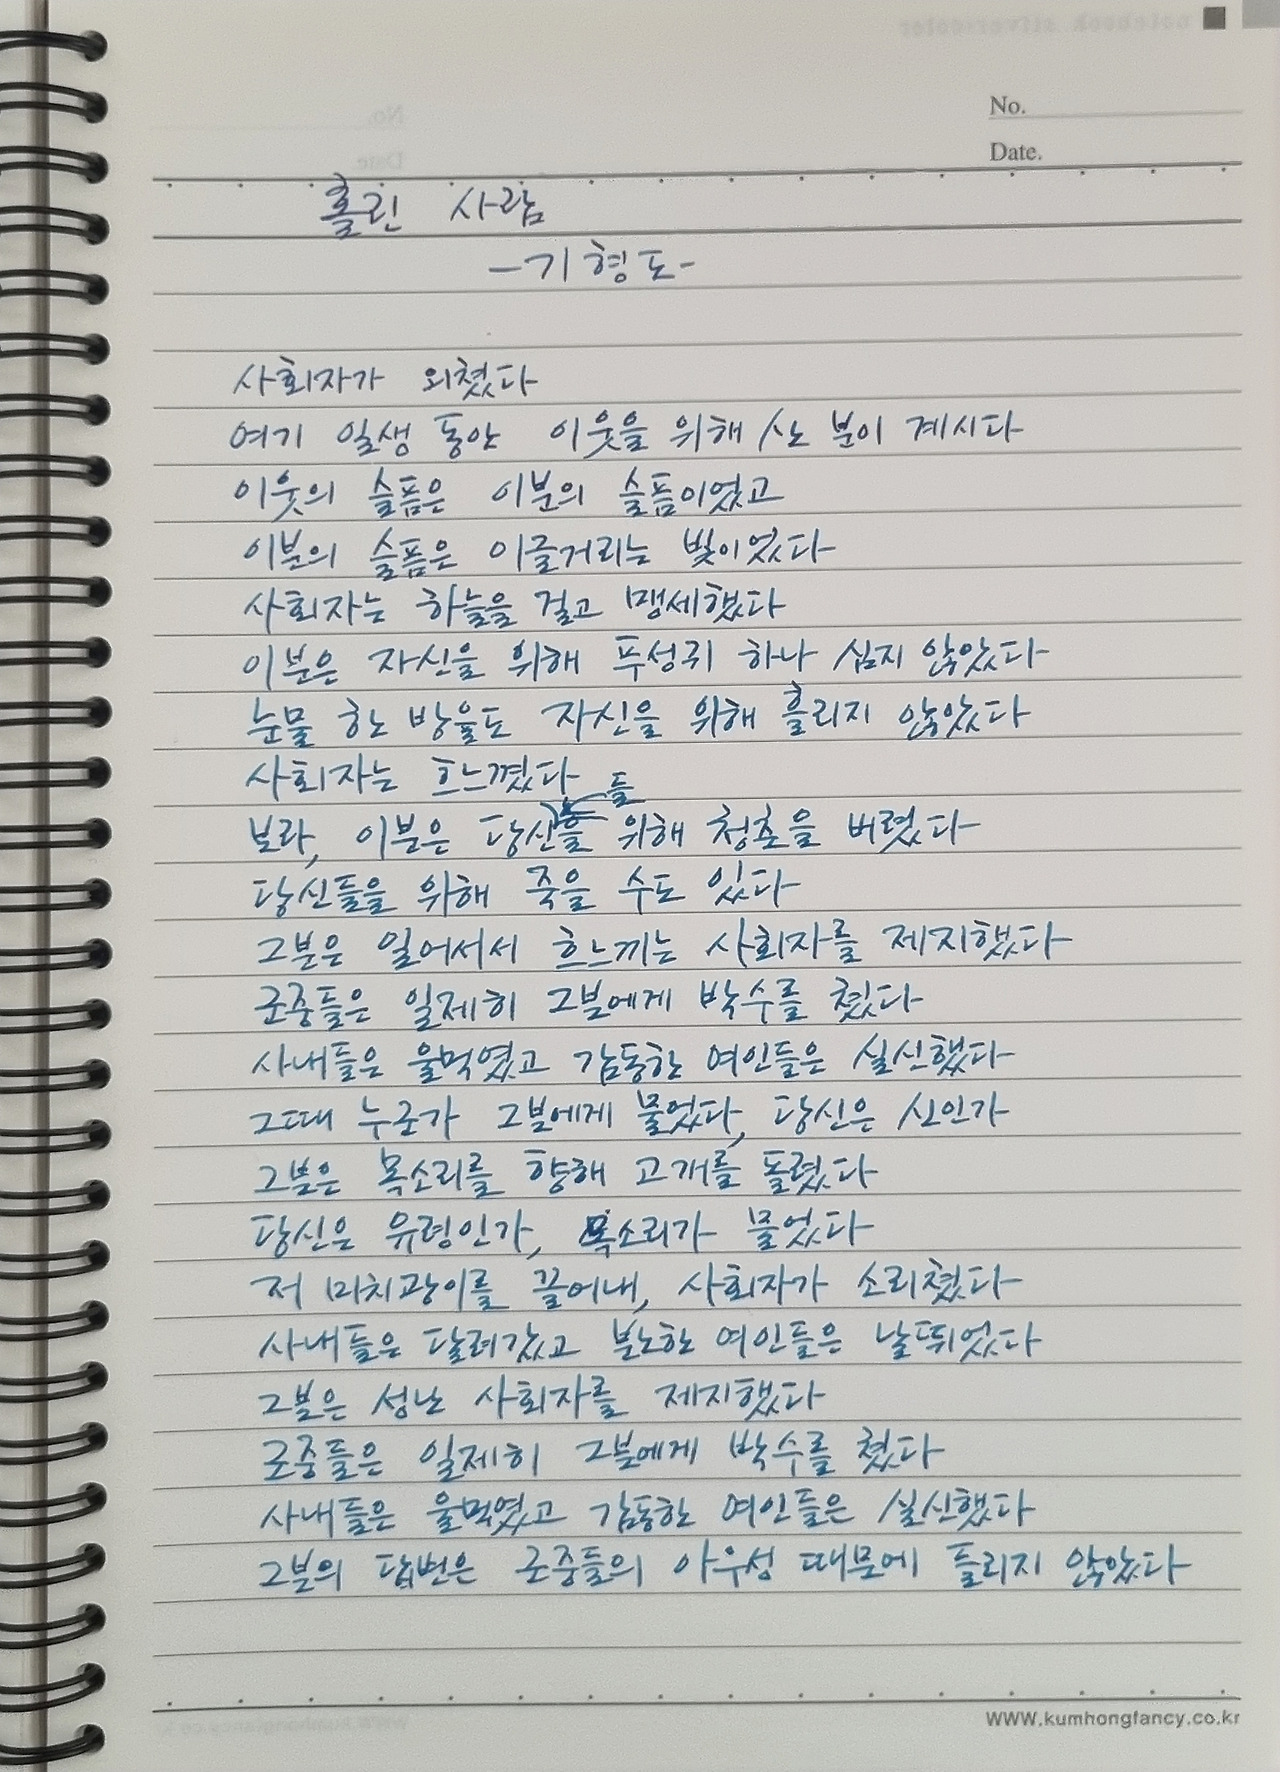 No.
Date.
홀린 사람
-기형도-
사회자가 외쳤다
여기 일생 동안 이웃을 위해 산 분이 계시다
이웃의 슬픔은 이분의 슬픔이었고
이분의 슬픔은 이글거리는 빛이었다
사회자는 하늘을 걸고 맹세했다
이분은 자신을 위해 푸성귀 하나 심지 않았다
눈물 한 방울도 자신을 위해 흘리지 않았다
사회자는 흐느꼈다
보라, 이분은 당신들을 위해 청춘을 버렸다
당신들을 위해 죽을 수도 있다
그분은 일어서서 흐느끼는 사회자를 제지했다
군중들은 일제히 그분에게 박수를 쳤다
사내들은 울먹였고 감동한 여인들은 실신했다
그때 누군가 그분에게 물었다, 당신은 신인가
그분은 목소리를 향해 고개를 돌렸다
당신은 유령인가, 목소리가 물었다
저 미치광이를 끌어내, 사회자가 소리쳤다
사내들은 달려갔고 분노한 여인들은 날뛰었다
그분은 성난 사회자를 제지했다
군중들은 일제히 그분에게 박수를 쳤다
사내들은 울먹였고 감동한 여인들은 실신했다
그분의 답변은 군중들의 아우성 때문에 들리지 않았다
www.kumhongfancy.co.kr